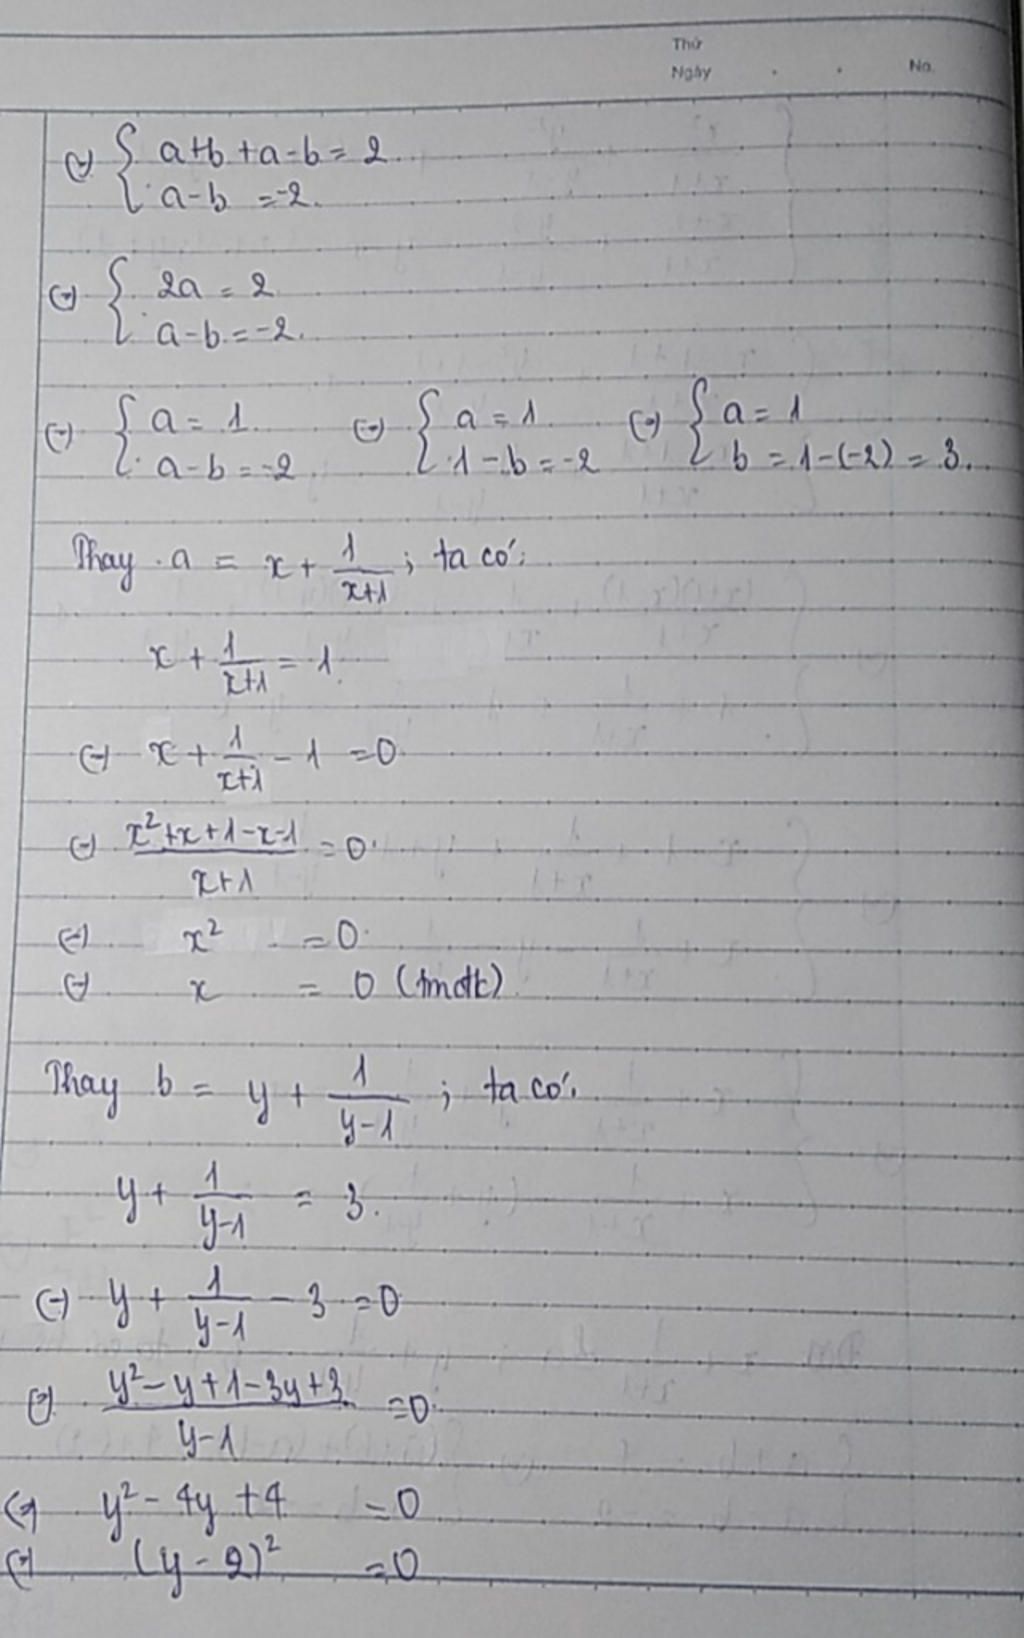 Thứ
Ngày . . No.
(=) { a+b+a-b = 2
a-b = -2.
(=) { 2a = 2
a-b = -2.
(=) { a = 1 (=) { a = 1 (=) { a = 1
a-b = -2 1-b = -2 b = 1-(-2) = 3.
Thay a = x + 1/(x+1) ; ta có:
x + 1/(x+1) = 1.
(=) x + 1/(x+1) - 1 = 0
(=) (x²+x+1-x-1)/(x+1) = 0
(=) x² = 0
(=) x = 0 (tmđk)
Thay b = y + 1/(y-1) ; ta có:
y + 1/(y-1) = 3.
(=) y + 1/(y-1) - 3 = 0
(=) (y²-y+1-3y+3)/(y-1) = 0
(=) y² - 4y + 4 = 0
(=) (y-2)² = 0